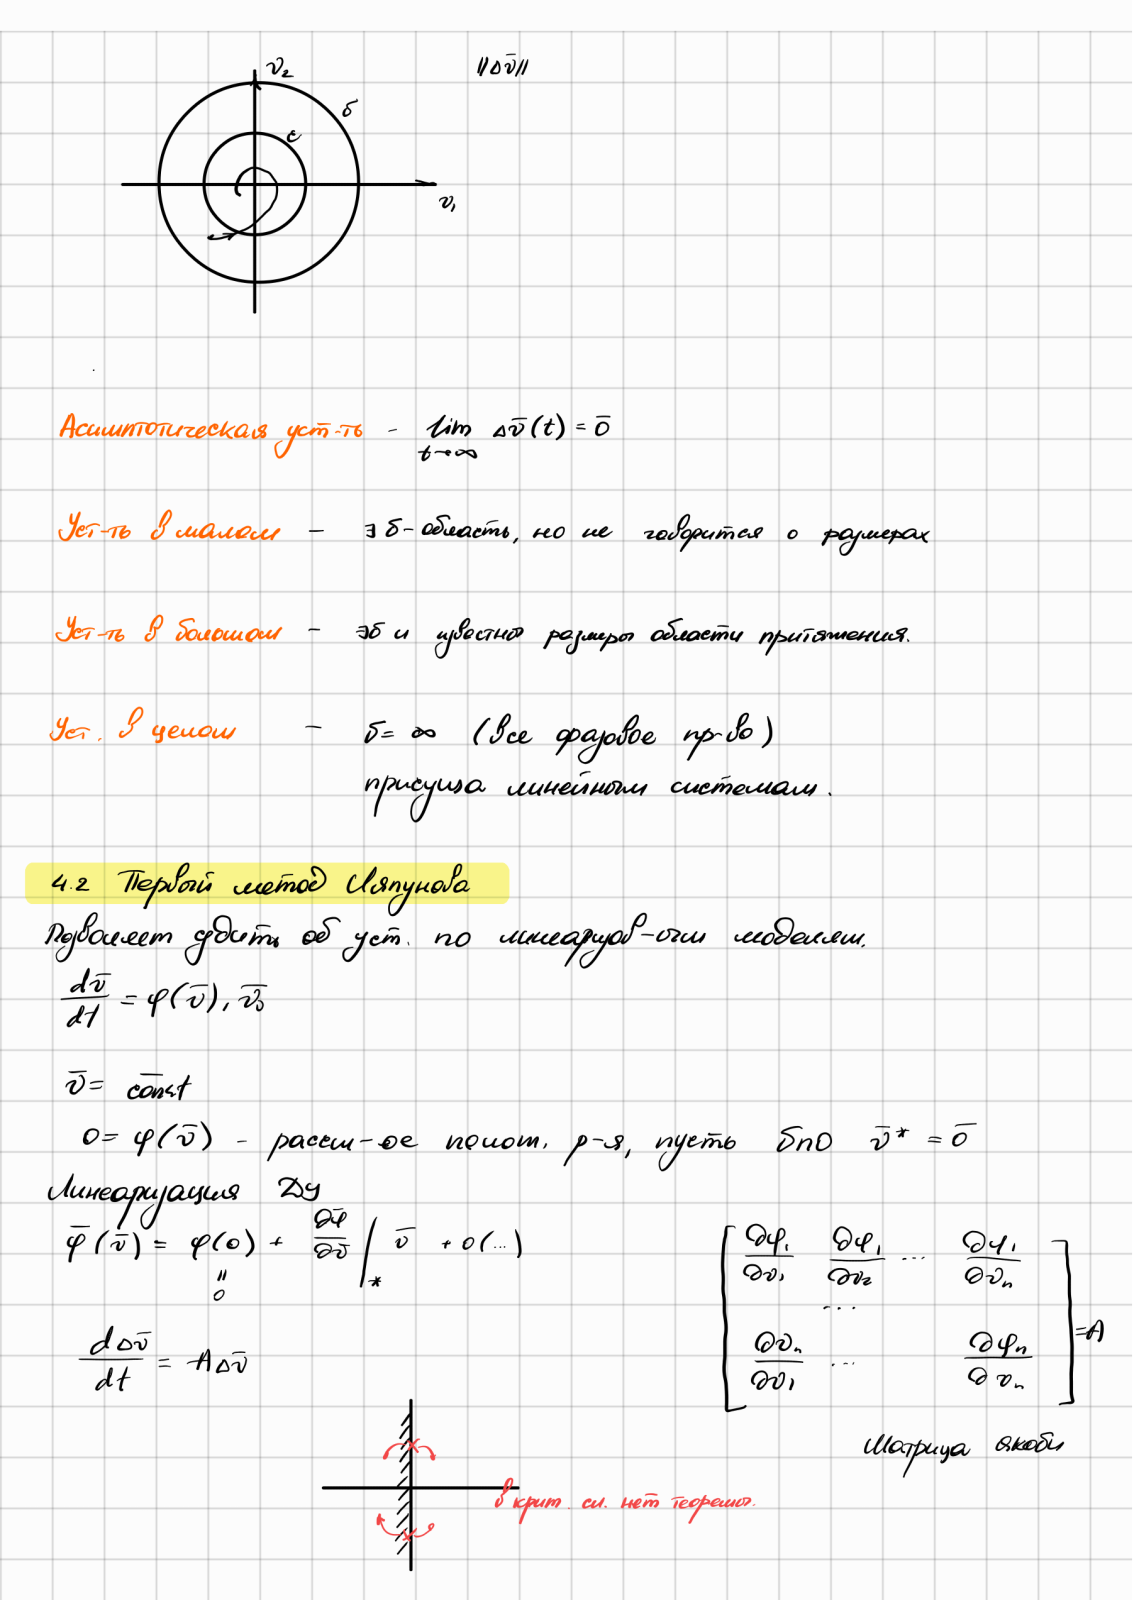 v₂
||Δv̄||
б
ε
v₁
Асимптотическая уст-ть - lim Δv̄(t) = 0̄
t→∞
Уст-ть в малом - ∃ б-область, но не говорится о размерах
Уст-ть в большом - ∃б и известны размеры области притяжения.
Уст. в целом - б= ∞ (все фазовое пр-во)
присуща линейным системам.
4.2 Первый метод Ляпунова
Позволяет судить об уст. по линеаризов-ым моделям.
dv̄/dt = φ(v̄), v̄₀
v̄ = const
0 = φ(v̄) - рассм-ое полож. р-я, пусть бпО v̄* = 0̄
Линеаризация ДУ
φ̄(v̄) = φ(0) + ∂φ̄/∂v̄ |* v̄ + o(...)
"
0
[∂φ₁/∂v₁ ∂φ₁/∂v₂ ... ∂φ₁/∂vₙ
...
∂vₙ/∂v₁ ... ∂φₙ/∂vₙ] = A
dΔv̄/dt = AΔv̄
Матрица якоби
в крит. сл. нет теоремы.